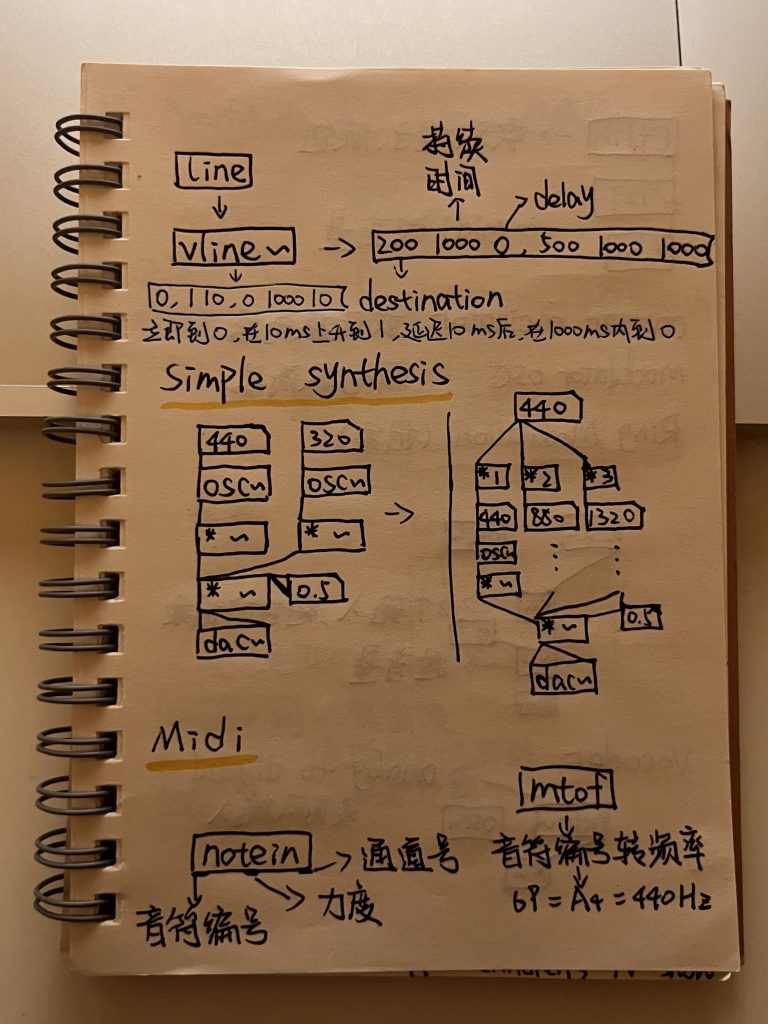 持续
时间
line
delay
vline~ → 200 1000 0, 500 1000 1000
0, 1 10, 0 1000 10 destination
立即到0, 在10ms上升到1, 延迟10ms后, 在1000ms内到0
Simple synthesis
440 320
osc~ osc~
*~ *~
*~ 0.5
dac~
440
*1 *2 *3
440 880 1320
osc~
*~
*~ 0.5
dac~
Midi
mtof
notein 通道号
音符编号 力度
音符编号转频率
69 = A4 = 440Hz